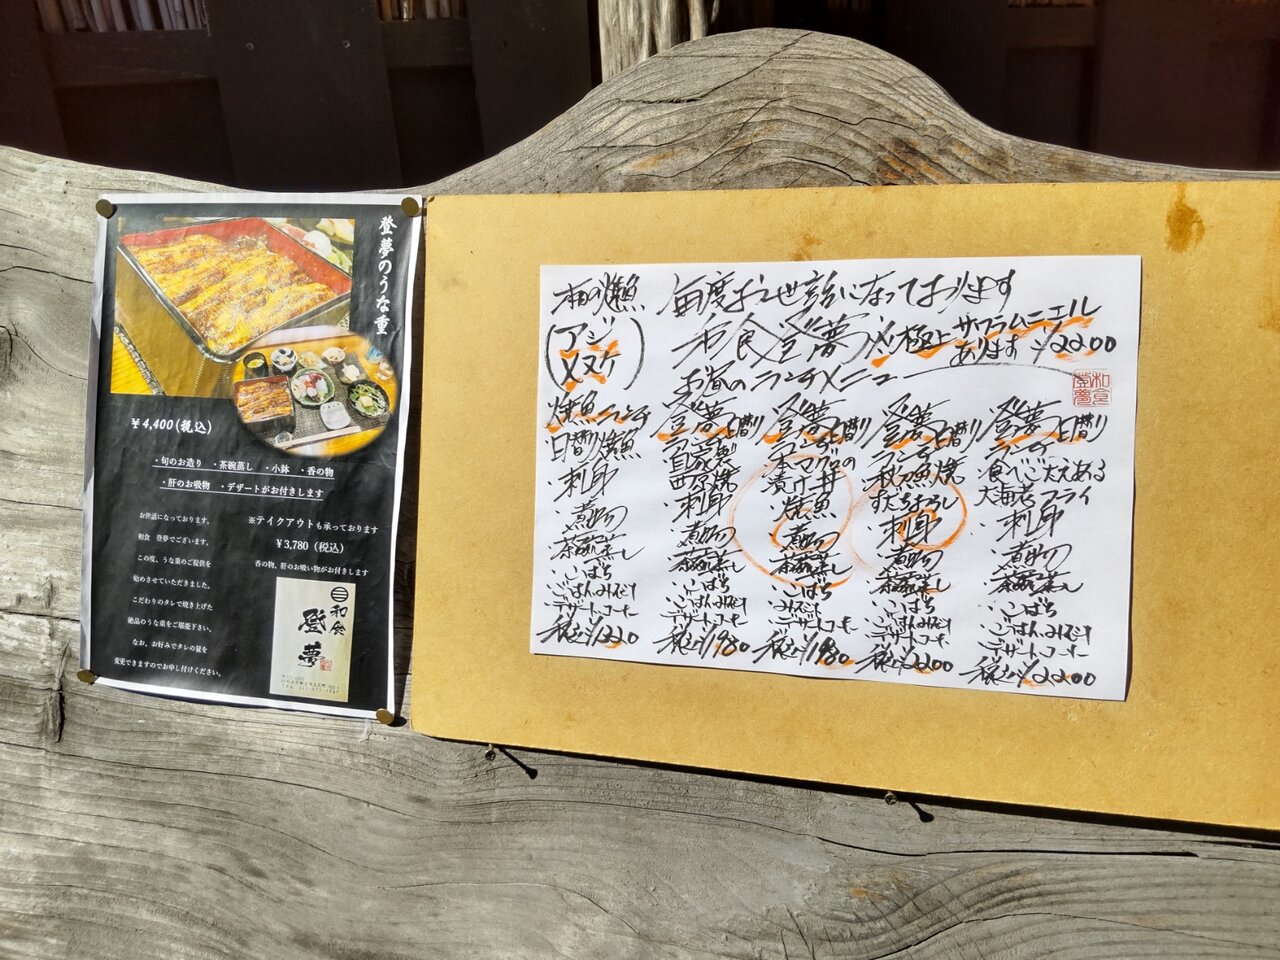 登夢のうな重
¥4,400(税込)
・旬のお造り ・茶碗蒸し ・小鉢 ・香の物
・肝のお吸物 ・デザートがお付きします
※テイクアウトも承っております
¥3,780(税込)
香の物、肝のお吸い物がお付きします
お世話になっております。
和食 登夢でございます。
この度、うな重のご提供を
始めさせていただきました。
こだわりのタレで焼き上げた
絶品のうな重をご堪能下さい。
なお、お好みでタレの量を
変更できますのでお申し付けください。
和食
登夢
本日の焼魚
(アジ
メヌケ)
毎度お世話になっております
和食登夢
極上サフラムニエル
あります ¥2200
お昼のランチメニュー
和食
登夢
焼魚ランチ
日替り焼魚
・刺身
・煮物
・茶碗蒸し
・こばち
・ごはんみそ汁
デザートコーヒー
税込¥1220
登夢日替り
ランチ
自家製
西京焼
・刺身
・煮物
・茶碗蒸し
・こばち
・ごはんみそ汁
・デザートコーヒー
税込¥1980
登夢日替り
ランチ
本マグロの
漬け丼
・焼魚
・煮物
・茶碗蒸し
・こばち
みそ汁
・デザートコーヒー
税込¥1980
登夢日替り
ランチ
秋刀魚焼
すだちおろし
・刺身
・煮物
・茶碗蒸し
・こばち
・ごはんみそ汁
デザートコーヒー
税込¥2200
登夢日替り
ランチ
食べごたえある
大海老フライ
・刺身
・煮物
・茶碗蒸し
・こばち
・ごはんみそ汁
デザートコーヒー
税込¥2200